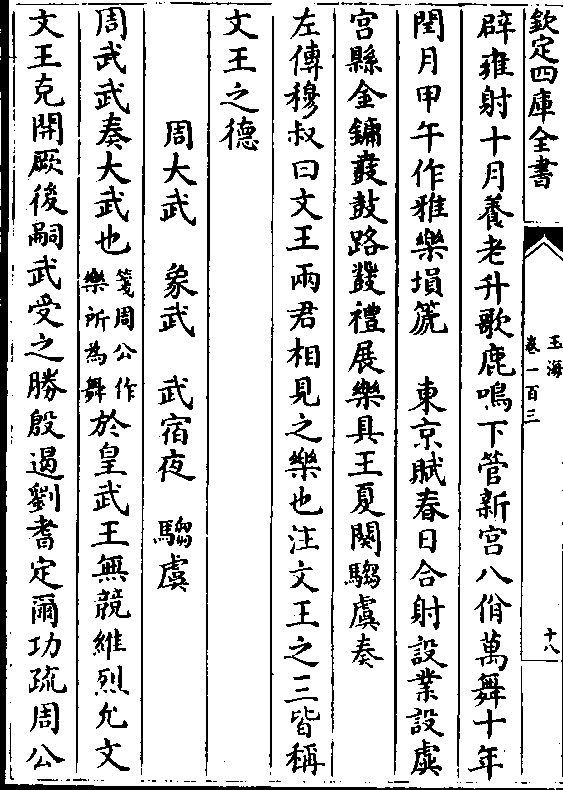 欽定四庫全書
玉海
卷一百三
十八
辟雍射十月養老升歌鹿鳴下管新宫八佾萬舞十年
閏月甲午作雅樂塤箎　東京賦春日合射設業設虡
宫縣金鏞鼖鼓路鼗禮展樂具王夏闋騶虞奏
左傳穆叔曰文王兩君相見之樂也注文王之三皆稱
文王之德
周大武　象武　武宿夜　騶虞
周武武奏大武也箋周公作樂所為舞於皇武王無競維烈允文
文王克開厥後嗣武受之勝殷遏劉耆定爾功疏周公